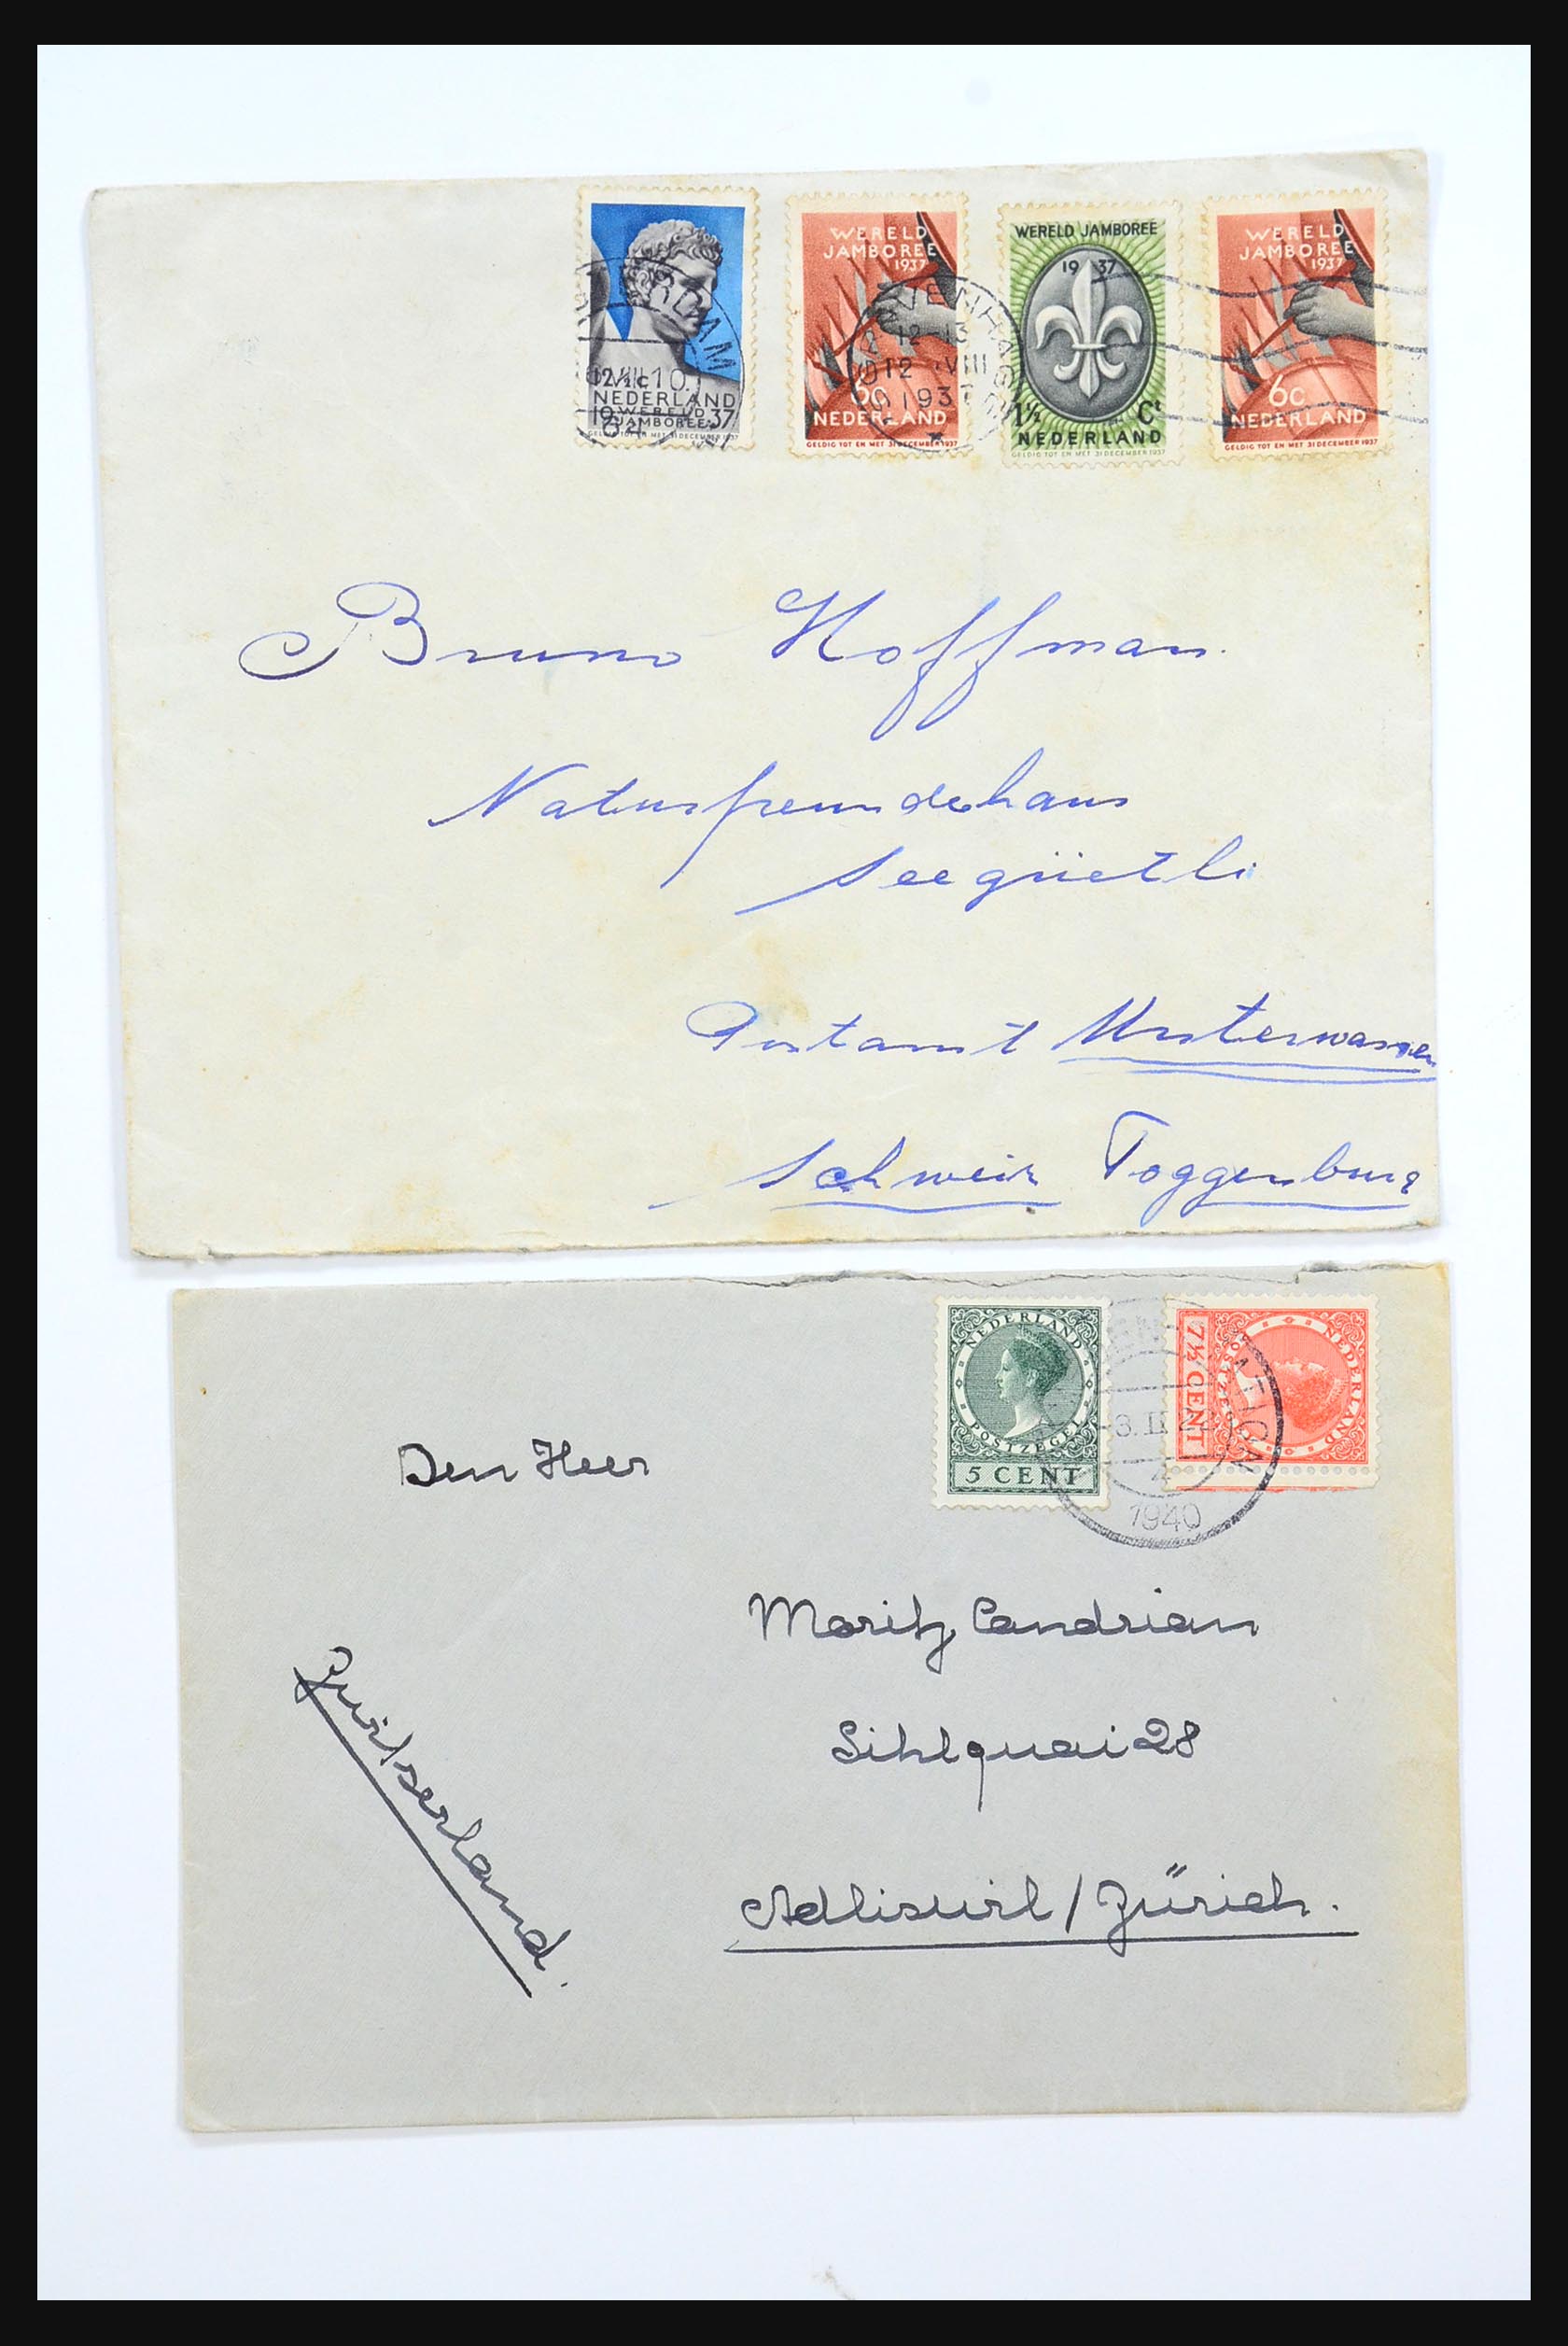 12½c
NEDERLAND
19 WERELD 37
JAMBOREE
GELDIG TOT EN MET 31 DECEMBER 1937
WERELD
JAMBOREE
1937
6c
NEDERLAND
GELDIG TOT EN MET 31 DECEMBER 1937
12-13
12 VIII
1937
WERELD JAMBOREE
19 37
1½ Ct
NEDERLAND
GELDIG TOT EN MET 31 DECEMBER 1937
WERELD
JAMBOREE
1937
6c
NEDERLAND
GELDIG TOT EN MET 31 DECEMBER 1937
Bruno Hoffman.
Naturfreundehaus
Seegüetli
Postamt Unterwasser
Schweiz Toggenburg
NEDERLAND
POSTZEGEL
5 CENT
NEDERLAND
POSTZEGEL
7½ CENT
4
1940
Den Heer
Moritz Candrian
Sihlquai 28
Adliswil / Zürich.
Zwitserland.